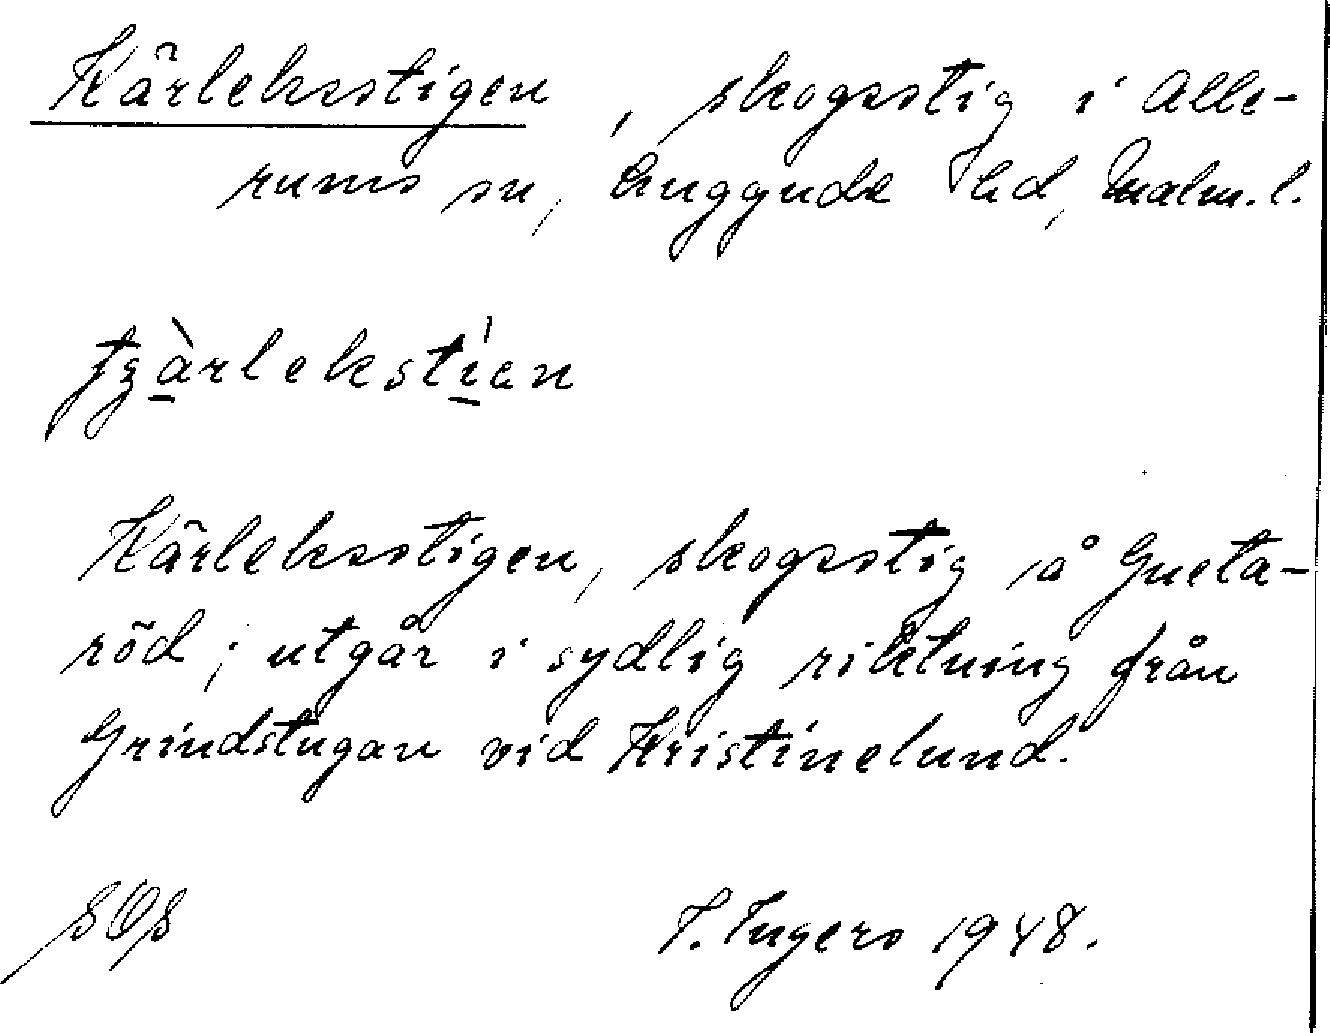 Kärleksstigen, skogsstig i Alle-
rums sn, Luggude hd, Malm. l.
Kärleksstigen, skogsstig å Gueta-
röd; utgår i sydlig riktning från
Grindstugan vid Kristinelund.
1948.